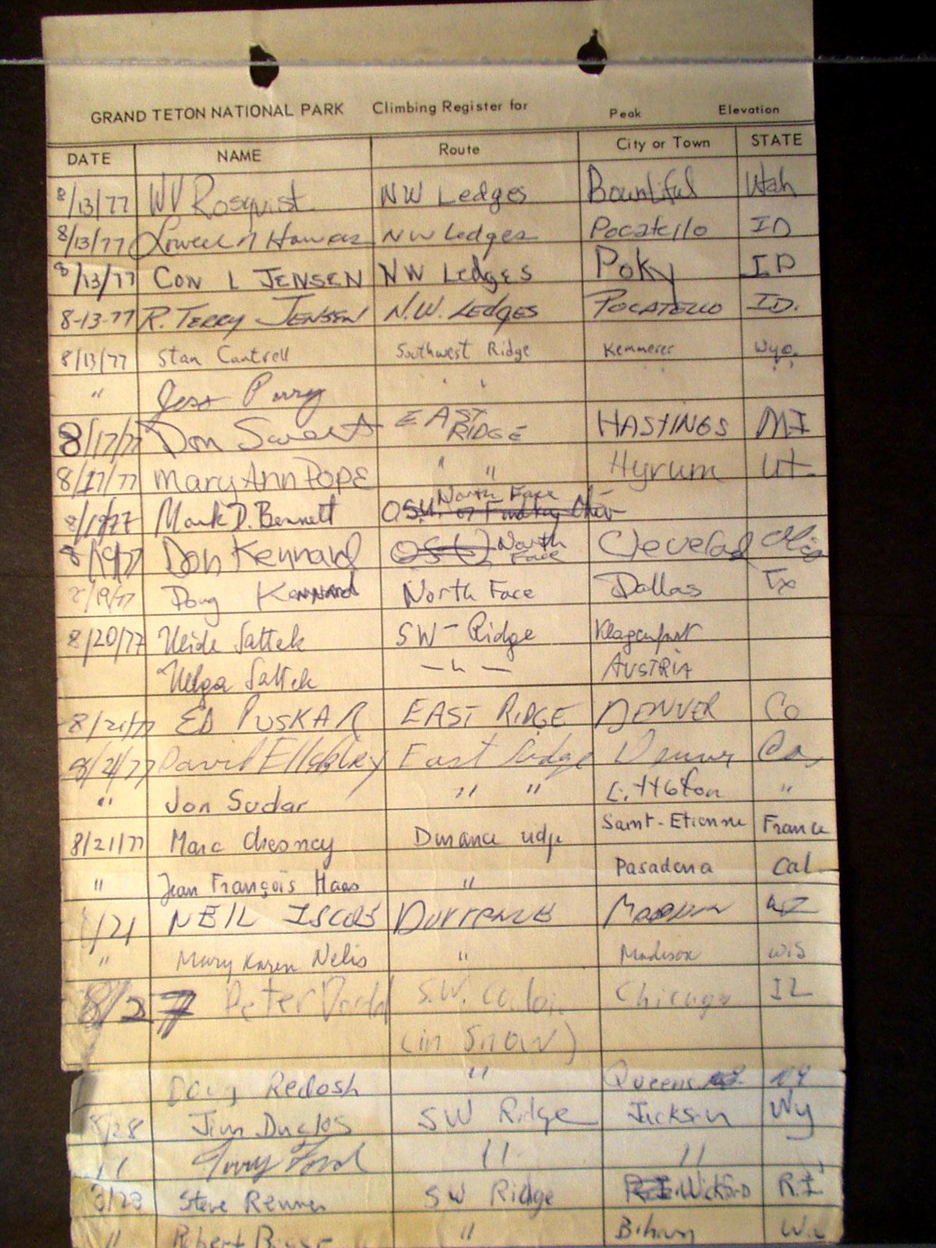 GRAND TETON NATIONAL PARK Climbing Register for Peak Elevation
DATE NAME Route City or Town STATE
8/13/77 WV Rosquist NW Ledges Bountiful Utah
8/13/77 Lowell N NW Ledges Pocatello ID
8/13/77 CON L JENSEN NW Ledges Poky ID
8-13-77 R. TERRY JENSEN N.W. LEDGES POCATELLO ID.
8/13/77 Stan Cantrell Southwest Ridge Kemmerer Wyo.
" Jess Perry " "
8/17/77 Don EAST RIDGE HASTINGS MI
8/17/77 Mary Ann Pope " " Hyrum Ut
8/19/77 Mark D. Bennett North Face
8/19/77 Don Kennard North Face Cleveland Ohio
8/19/77 Doug Kennard North Face Dallas Tx
8/20/77 Heide Sattek SW-Ridge Klagenfurt
Helga Sattek — " — AUSTRIA
8/21/77 ED PUSKAR EAST RIDGE DENVER Co
8/21/77 David East Ridge Denver Co,
" Jon Sudar " " Littleton "
8/21/77 Marc Chesney Durance Saint-Etienne France
" Jean François Haas " Pasadena Cal
8/21 NEIL Durrance Madison WI
" Mary Karen Nelis " Madison Wis
8/27 Peter S.W. Chicago IL
(in snow)
Doug Redosh " Queens NY
8/28 Jim Duclos SW Ridge Jackson Wy
" Terry Ford " "
8/28 Steve Renner SW Ridge Wickford R.I.
" Robert "